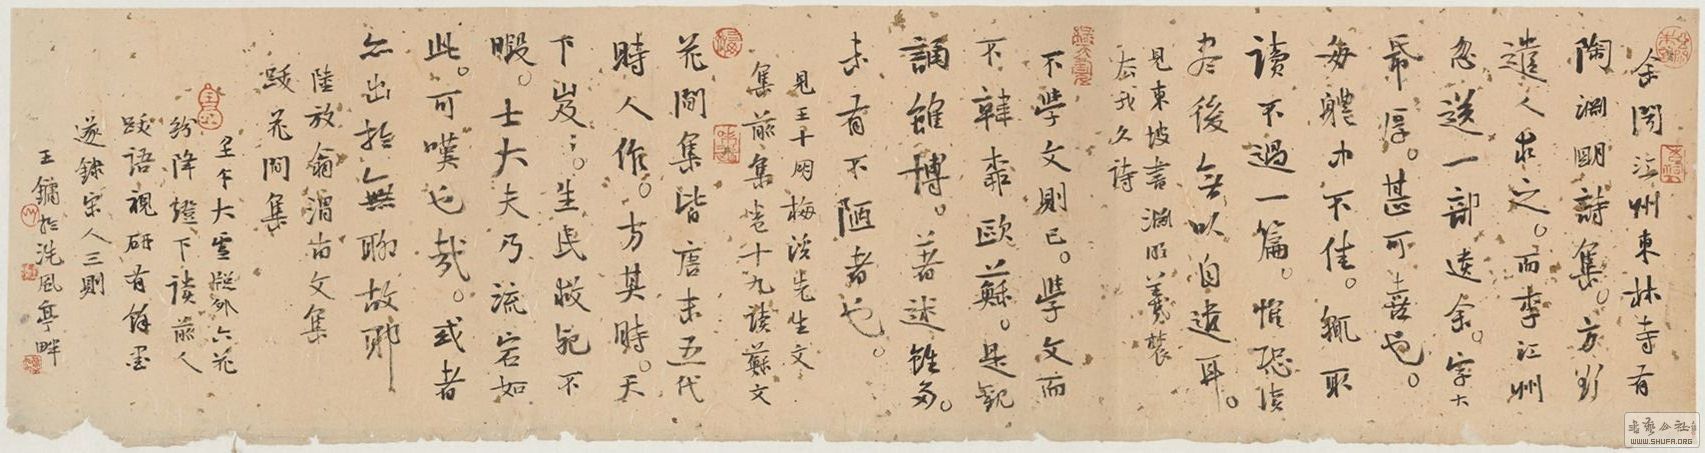 余聞江州東林寺有
陶淵明詩集。方欲
遣人求之。而李江州
忽送一部遺余。字大
紙厚。甚可喜也。
每體中不佳。輒取
讀不過一篇。惟恐讀
盡後無以自遣耳。
見東坡書淵明羲農
去我久詩
不學文則已。學文而
不韓柳歐蘇。是觀
誦雖博。著述雖多。
未有不陋者也。
見王十朋梅溪先生文
集前集卷十九讀蘇文
花間集皆唐末五代
時人作。方其時。天
下岌岌。生民救死不
暇。士大夫乃流宕如
此。可嘆也哉。或者
亦出於無聊故耶
陸放翁渭南文集
跋花間集
壬午大雪牎外六花
紛降燈下讀前人
跋語視研有餘墨
遂錄宋人三則
王鏞於洗風亭畔
書藝公社
WWW.SHUFA.ORG